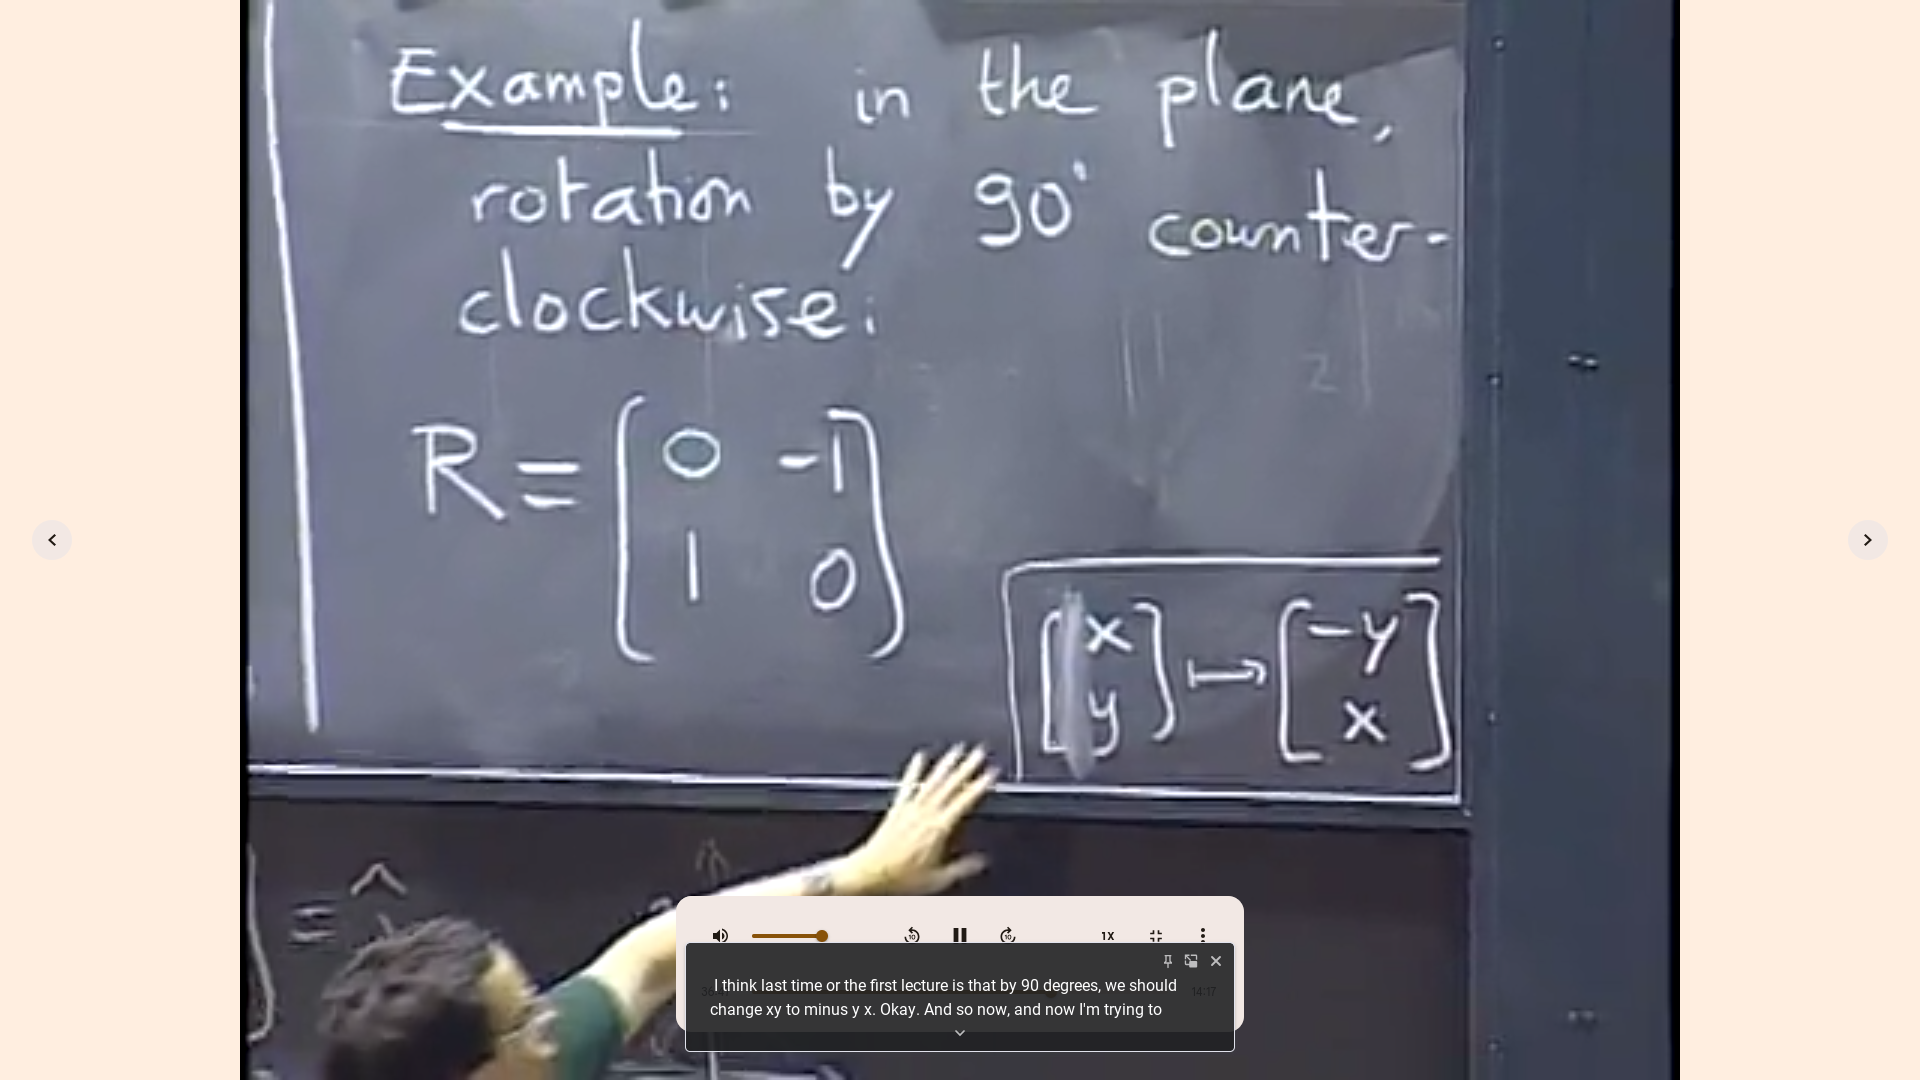 Example: in the plane,
rotation by 90° counter-
clockwise:
R = [0 -1
1 0]
[x y] ↦ [-y x]
=
1X
I think last time or the first lecture is that by 90 degrees, we should
change xy to minus y x. Okay. And so now, and now I'm trying to
14:17